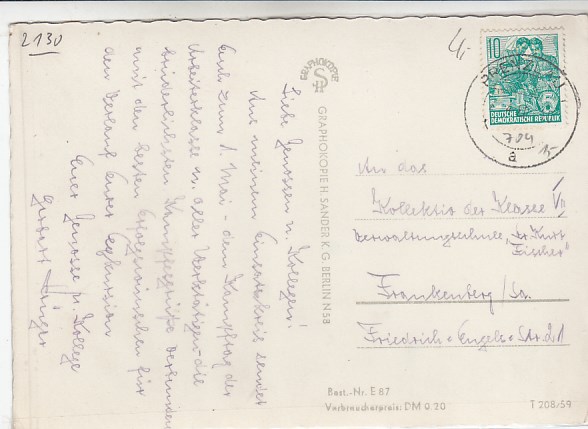 2130
4,-
10
DEUTSCHE
DEMOKRATISCHE REPUBLIK
5
PRENZLAU 1
a
784
15
GRAPHOKOPIE
GRAPHOKOPIE H. SANDER K.G. BERLIN N 58
Liebe Genossen u. Kollegen!
Aus meinem Einsatzkreis sendet
Euch zum 1. Mai - dem Kampftag der
Arbeiterklasse u. aller Werktätigen - die
brüderlichsten Kampfesgrüße verbunden
mit den besten Erfolgswünschen für
den Verlauf Eurer Exkursion
Euer Genosse u. Kollege
An das
Kollektiv der Klasse VII
Verwaltungsschule "Kurt
Fischer"
Frankenberg/Sa.
Friedrich-Engels-Str. 21
Best.-Nr. E 87
Verbraucherpreis: DM 0.20
T 208/59